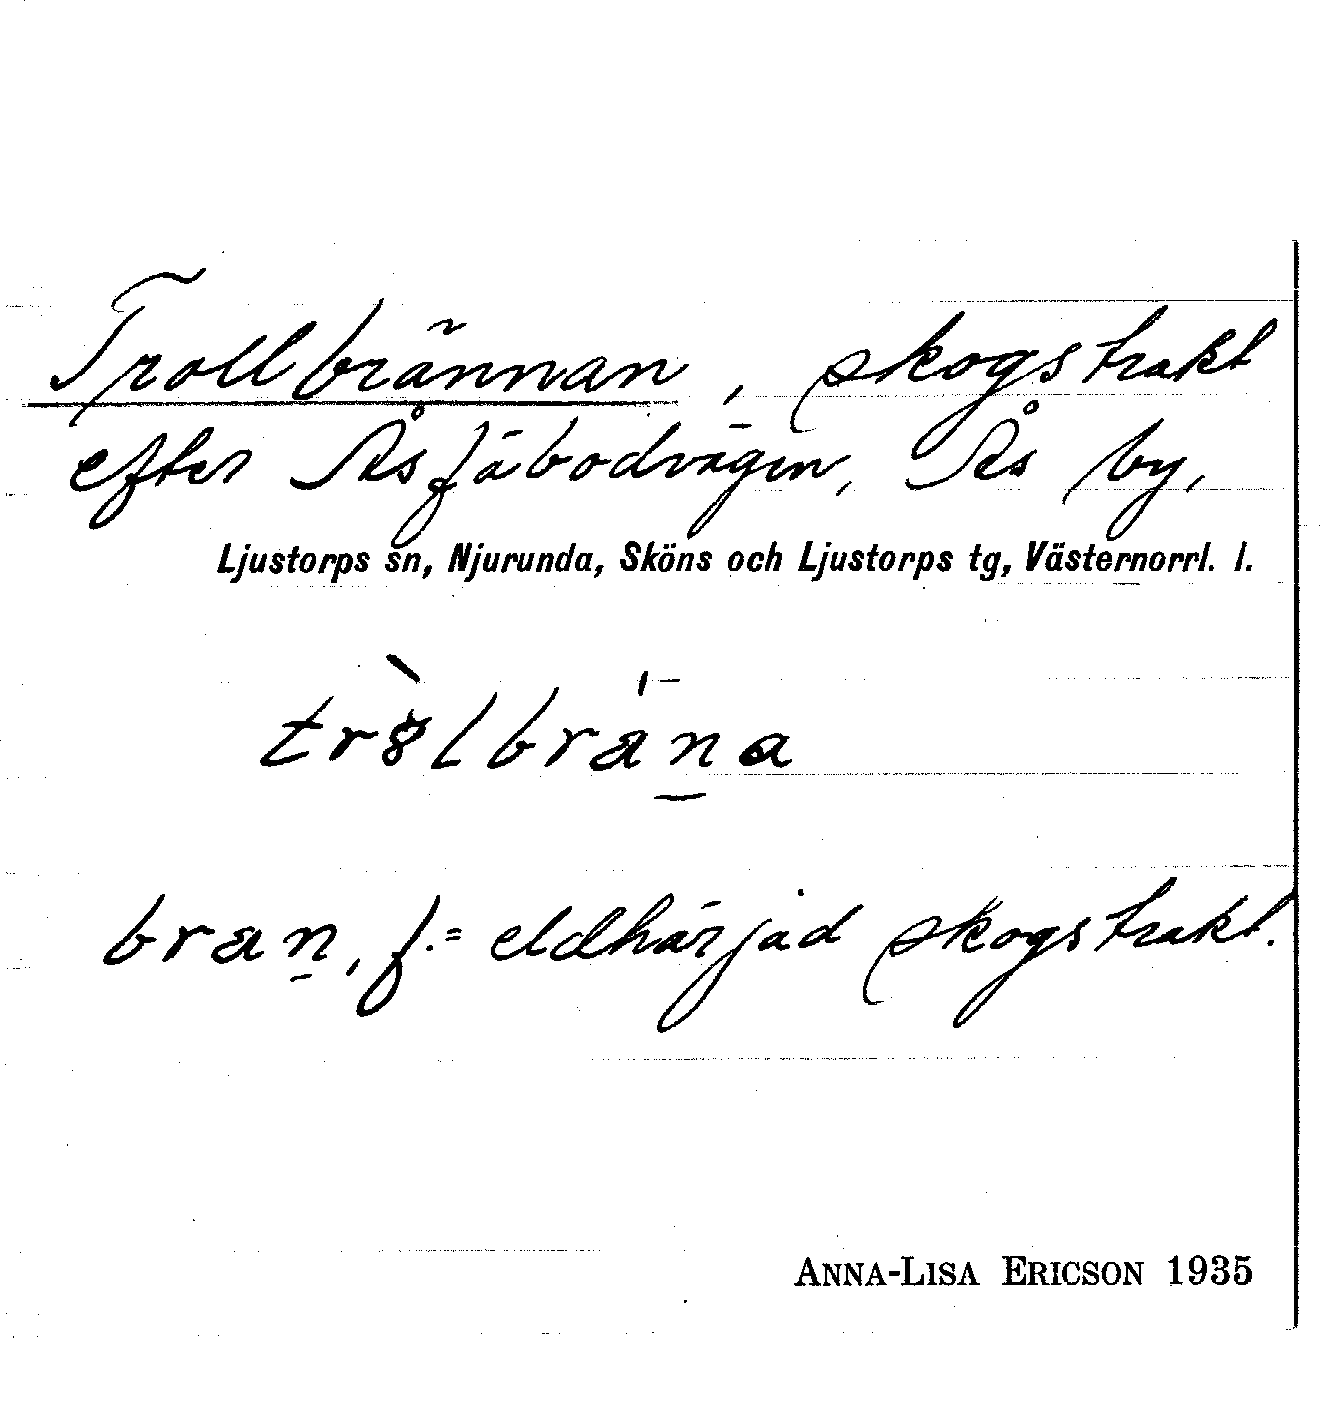 Trollbrännan, skogstrakt
efter Åsfäbodvägen, Ås by,
Ljustorps sn, Njurunda, Sköns och Ljustorps tg, Västernorrl. l.
trò̀lbrän̲a
bran̲, f. = eldhärjad skogstrakt.
ANNA-LISA ERICSON 1935